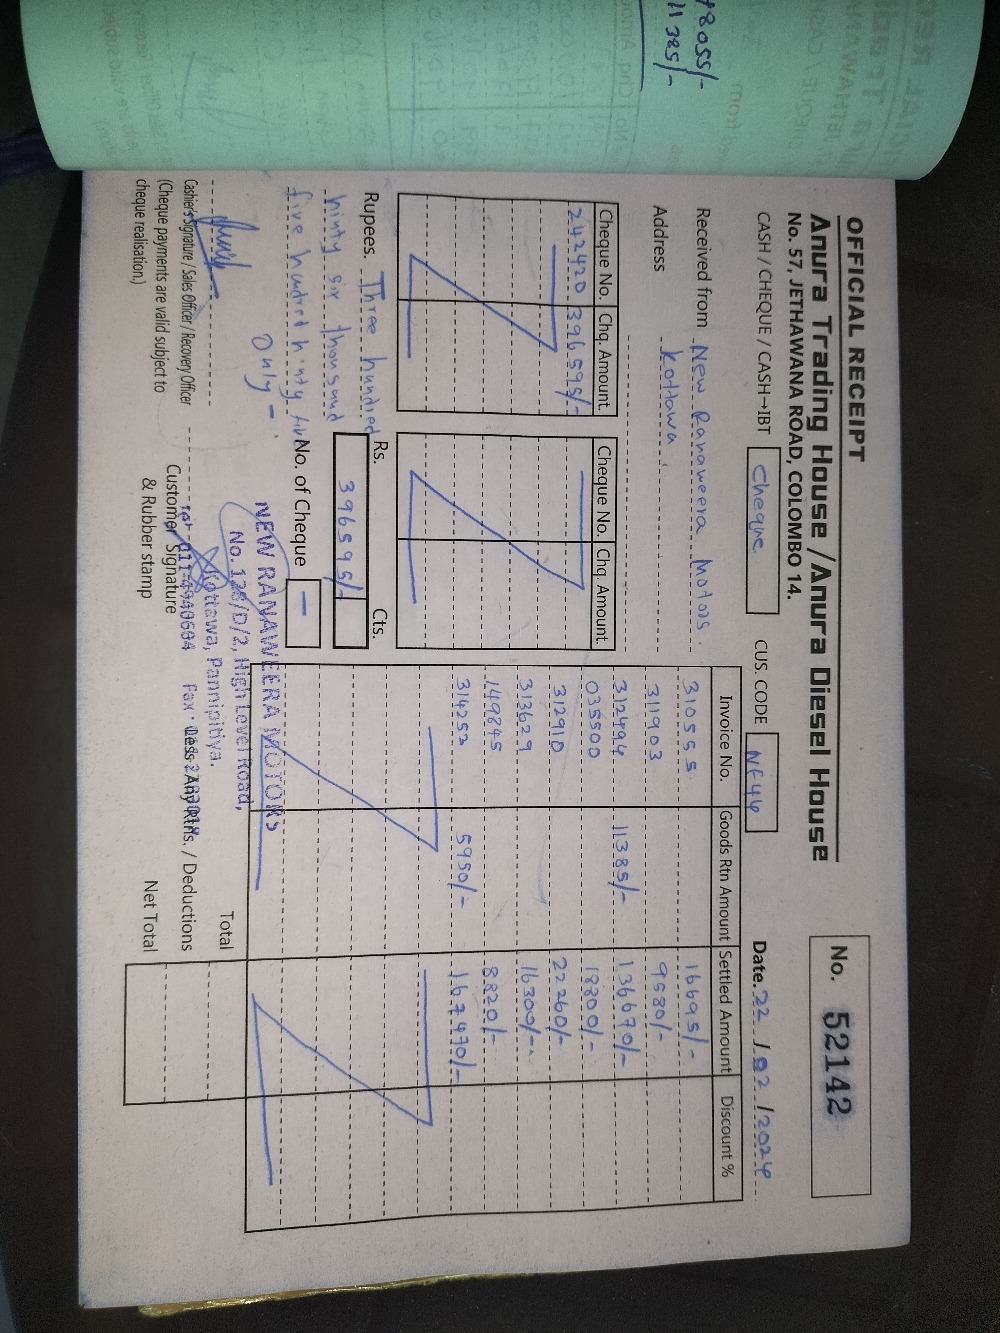 48055/-
11385/-
OFFICIAL RECEIPT
Anura Trading House / Anura Diesel House
No. 57, JETHAWANA ROAD, COLOMBO 14.
No. 52142
CASH / CHEQUE / CASH-IBT Cheque CUS. CODE Nf44 Date. 22 / 02 / 2024
Received from New Ranaweera Motors.
Address Kottawa
Cheque No. Chq. Amount. Cheque No. Chq. Amount.
242420 396595/-
Invoice No. Goods Rtn Amount Settled Amount Discount %
310555 16695/-
311903 9580/-
312494 11385/- 136670/-
035500 18800/-
312910 22260/-
313629 16300/-
149845 8820/-
314253 5950/- 167470/-
Rupees. Three hundred
ninty six thousand
five hundred ninty five
Only -
Rs. Cts.
396595/-
No. of Cheque -
NEW RANAWEERA MOTORS
No. 128/D/2, High Level Road,
Kottawa, Pannipitiya.
Tel: 011-4940604 Fax:
Total
Less: Any Rtns. / Deductions
Net Total
Cashier's Signature / Sales Officer / Recovery Officer
(Cheque payments are valid subject to
cheque realisation.)
Customer Signature
& Rubber stamp